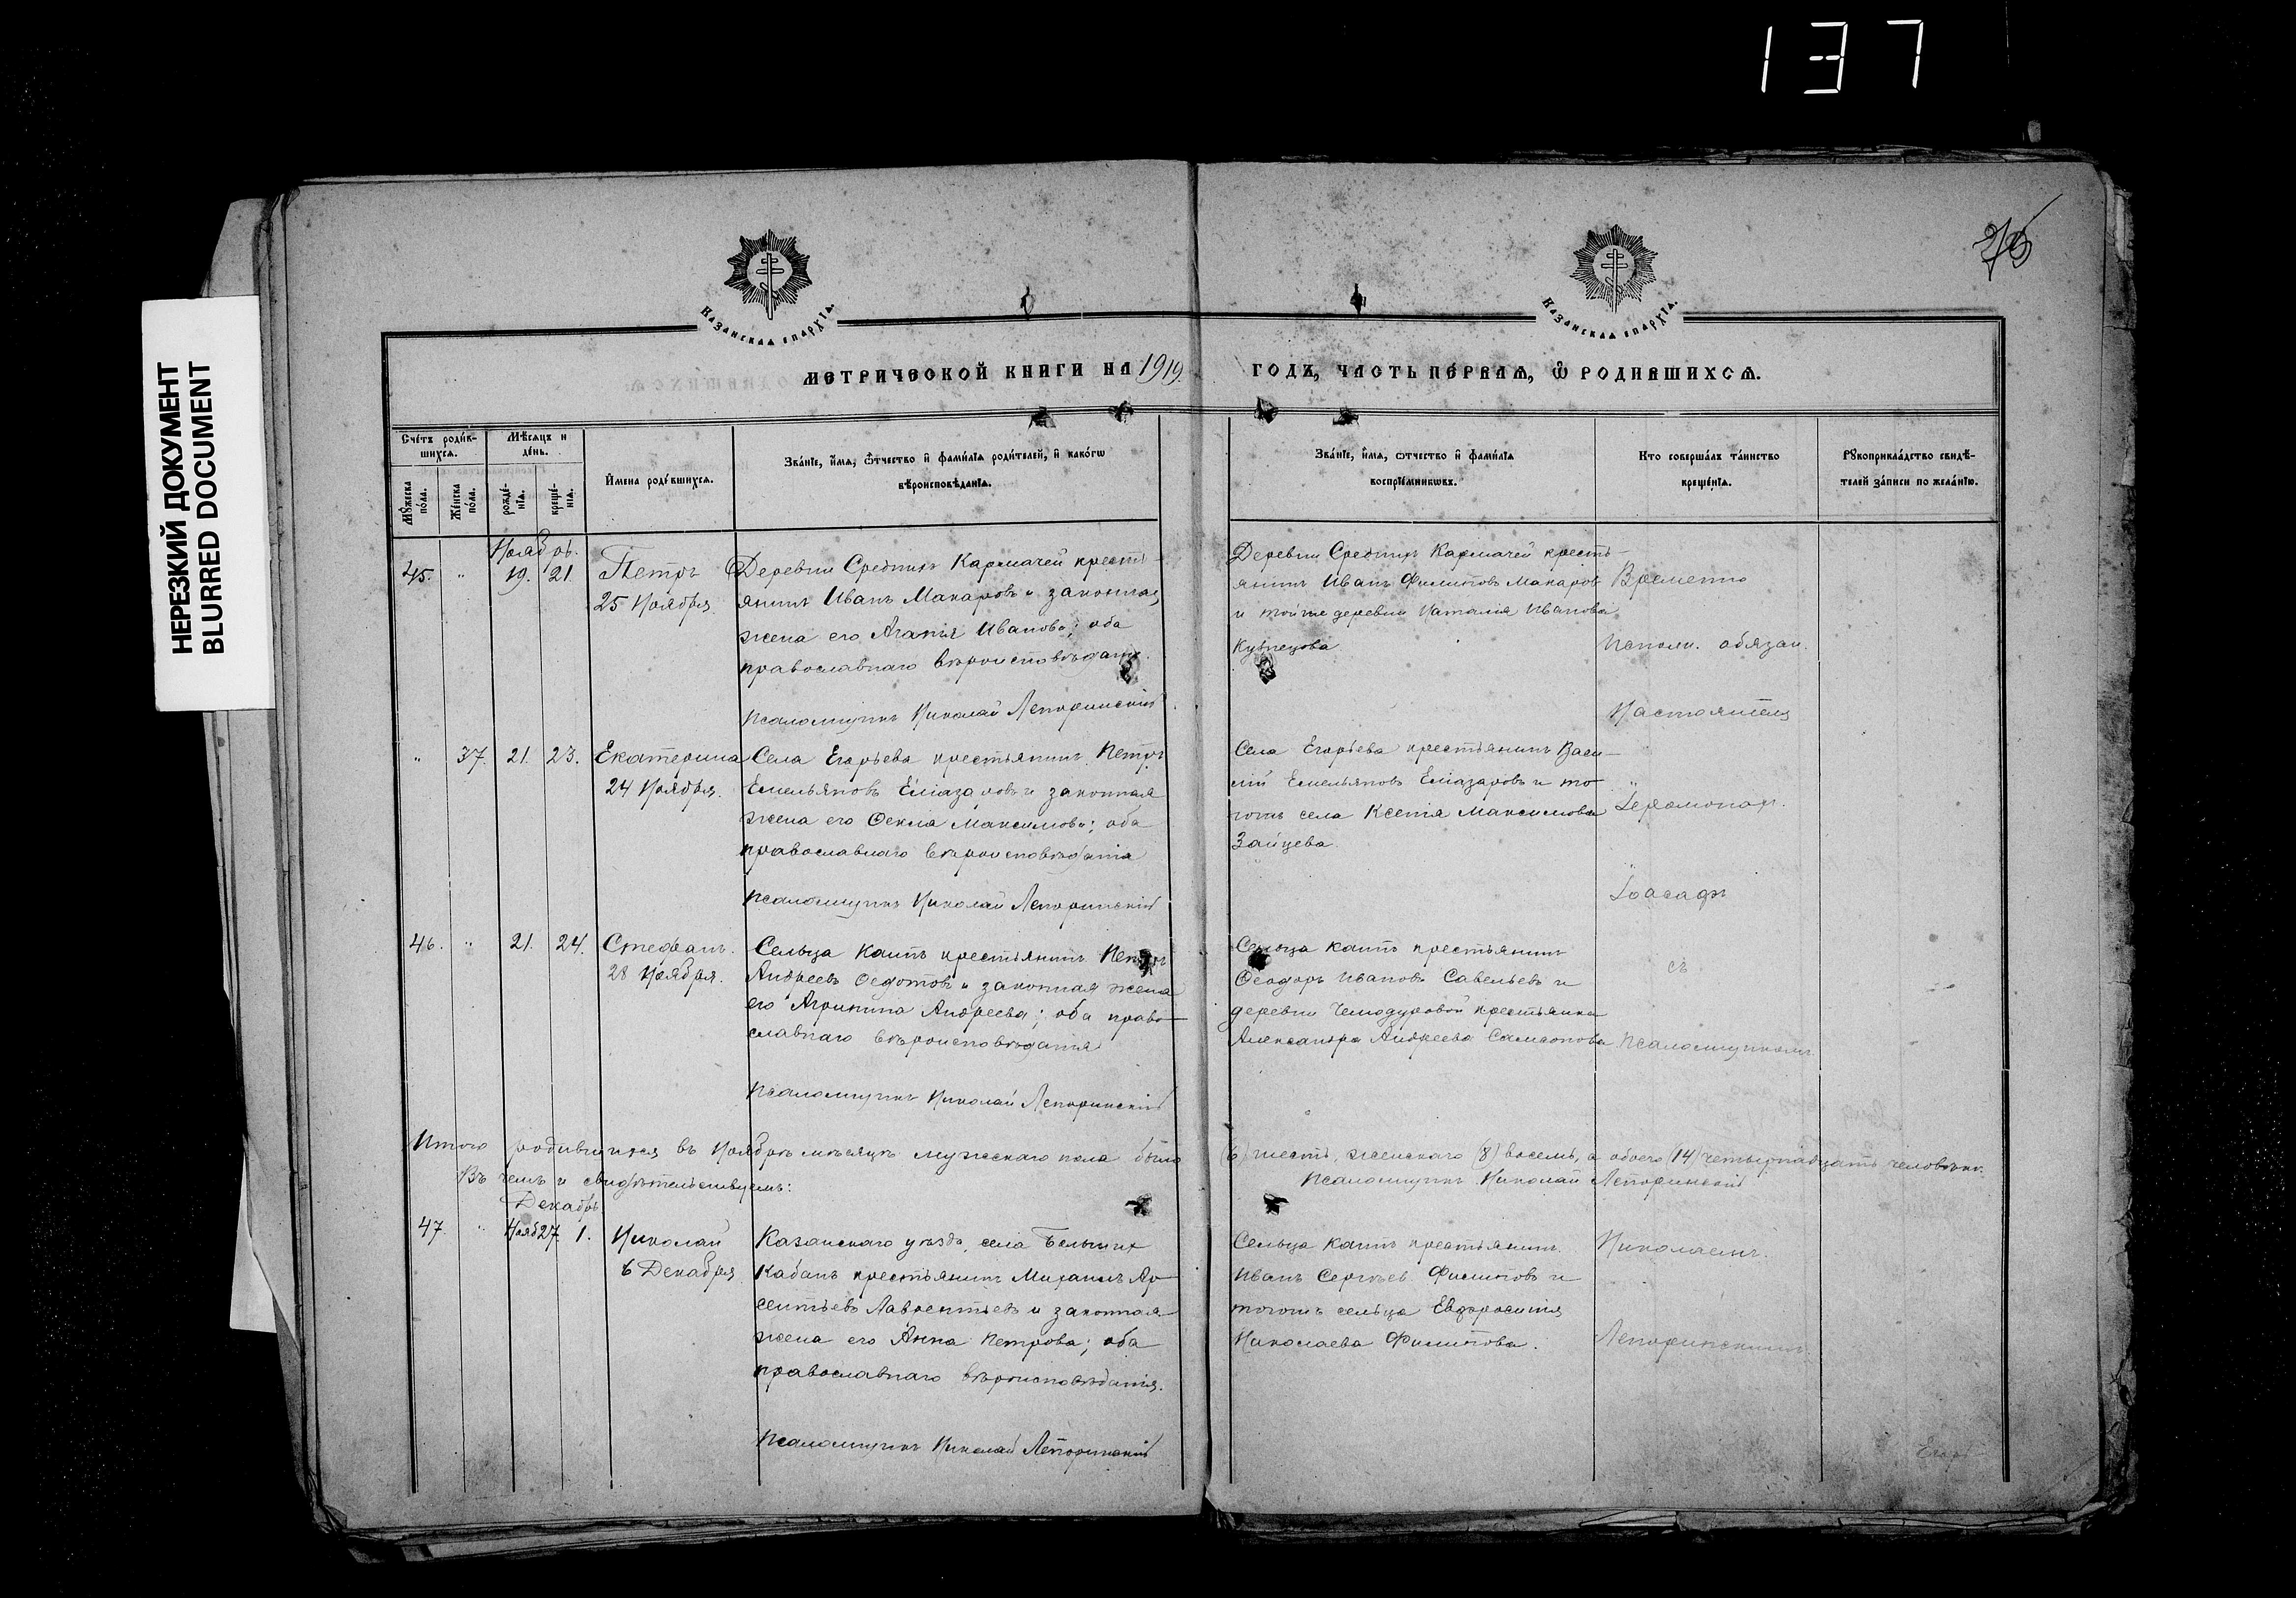 137
НЕРЕЗКИЙ ДОКУМЕНТ
BLURRED DOCUMENT
Казанская епархїя.
Казанская епархїя.
МЕТРИЧЕСКОЙ КНИГИ НА 1919
ГОДЪ, ЧАСТЬ ПЕРВАЯ, Ѽ РОДИВШИХСЯ.
Счетъ родив-
шихся.
Мѣсяцъ и
день.
Мꙋжеска
пола.
Женска
пола.
рожде-
нїя.
креще-
нїя.
Имена родившихся.
Званїе, имя, ѿчество и фамилїя родителей, и какогѡ
вѣроисповѣданїя.
Званїе, имя, ѿчество и фамилїя
воспрїемникѡвъ.
Кто совершалъ таинство
крещенїя.
Рꙋкоприкладство свидѣ-
телей записи по желанїю.
Ноябрь.
45. " 19. 21. Петръ
25 Ноября.
Деревни Среднихъ Кармачей кресть-
янинъ Иванъ Макаровъ и законная
жена его Агапія Иванова; оба
православнаго вѣроисповѣданія.
Псаломщикъ Николай Лепоринскій
Деревни Среднихъ Кармачей кресть-
янинъ Иванъ Филиповъ Макаровъ
и той же деревни Наталія Иванова
Кузнецова
Временно
Исполн. обязан.
Настоятеля
" 37. 21. 23. Екатерина
24 Ноября.
Села Егорьева крестьянинъ Петръ
Емельяновъ Еліазаровъ и законная
жена его Ѳекла Максимова; оба
православнаго вѣроисповѣданія
Псаломщикъ Николай Лепоринскій
Села Егорьева крестьянинъ Васи-
лій Емельяновъ Еліазаровъ и то-
гожъ села Ксенія Максимова
Зайцева.
Іеромонах.
Іоасафъ
46. " 21. 24. Стефанъ.
28 Ноября.
Сельца крестьянинъ Петръ
Андреевъ Ѳедотовъ и законная жена
его Агрипина Андреева; оба право-
славнаго вѣроисповѣданія
Псаломщикъ Николай Лепоринскій
Сельца крестьянинъ
Ѳеодоръ Ивановъ Савельевъ и
деревни Чемодуровой крестьянка
Александра Андреева Самсонова
съ
Псаломщикомъ
Итого родившихся въ Ноябрѣ мѣсяцѣ мужскаго пола было (6) шесть, женскаго (8) восемь, а обоего (14) четырнадцать человѣкъ.
Въ чемъ и свидѣтельствуемъ: Псаломщикъ Николай Лепоринскій
Декабрь
47 " Нояб 27. 1. Николай
6 Декабря
Казанскаго уѣзда, села
Кабанъ крестьянинъ Михаилъ Ар-
сентьевъ Лаврентьевъ и законная
жена его Анна Петрова; оба
православнаго вѣроисповѣданія.
Псаломщикъ Николай Лепоринскій
Сельца крестьянинъ
Иванъ Сергѣев. Филиповъ и
тогожъ сельца Евфросинія
Николаева Филипова.
Николаемъ.
Лепоринскимъ